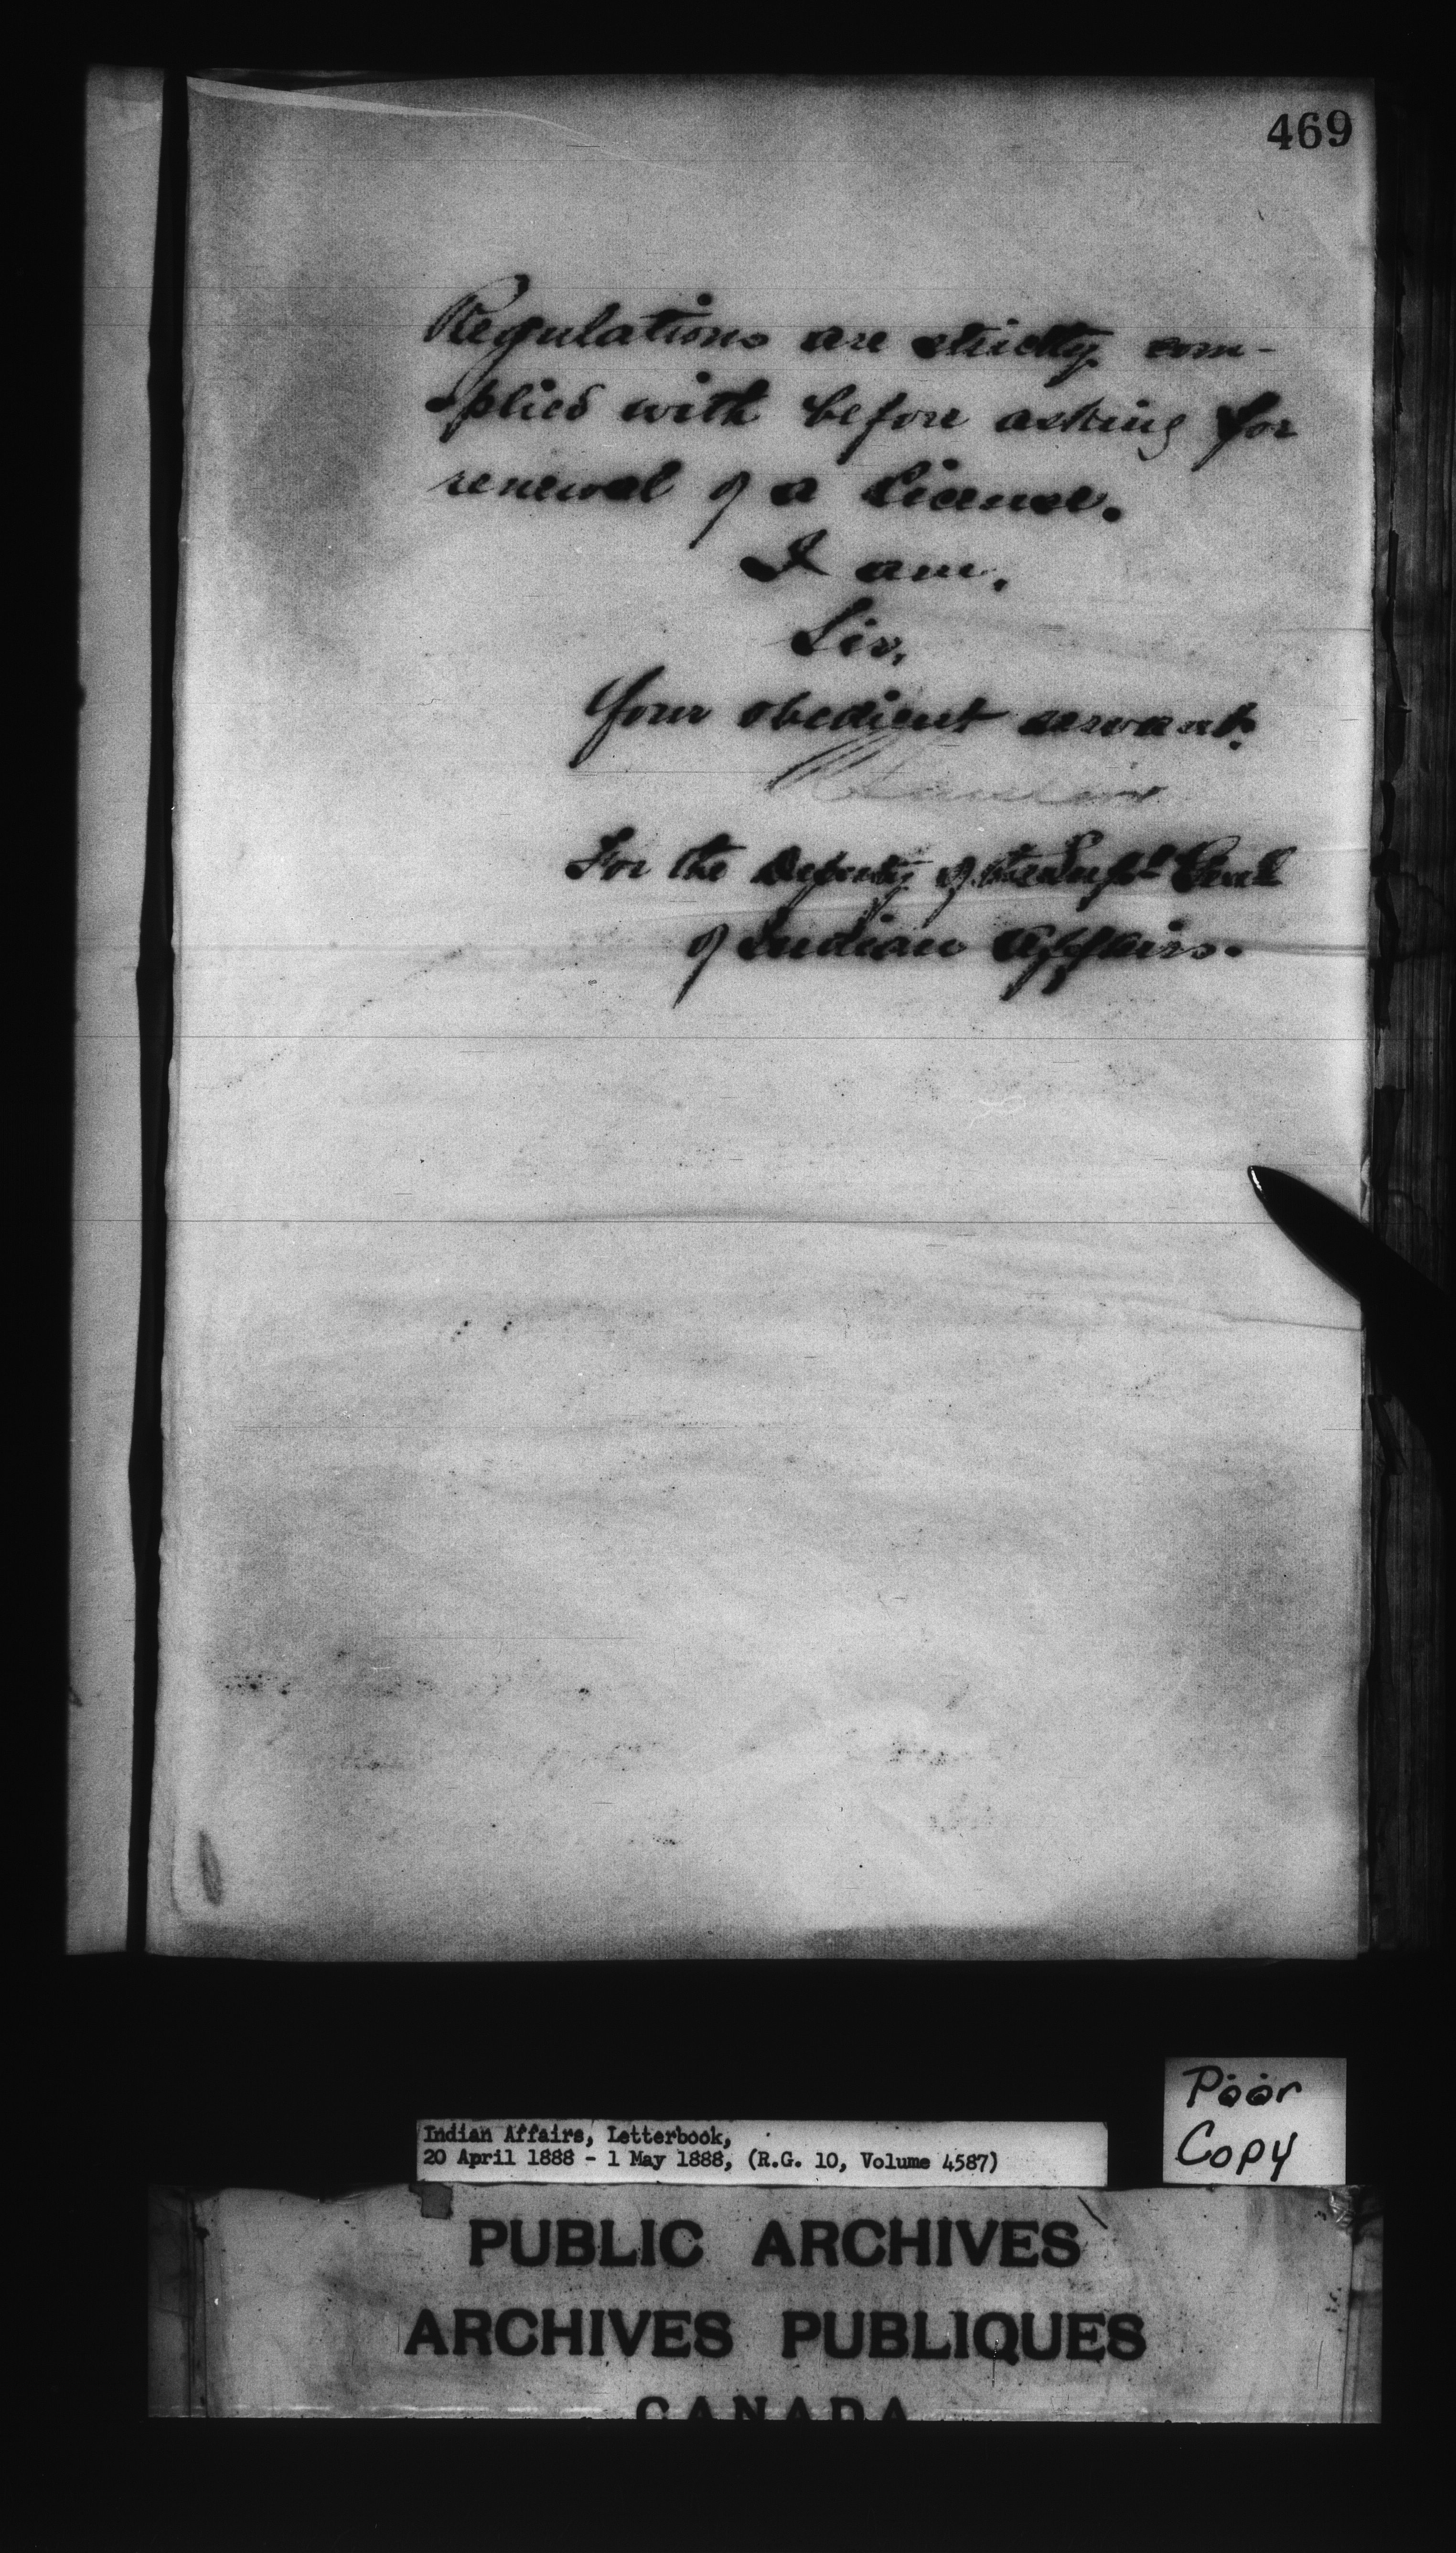 469
Regulations are strictly com-
plied with before asking for
renewal of a license.
I am,
Sir,
Your obedient servant.
For the Deputy of the Supt. Genl
of Indian Affairs.
Poor
Copy
Indian Affairs, Letterbook,
20 April 1888 - 1 May 1888, (R.G. 10, Volume 4587)
PUBLIC ARCHIVES
ARCHIVES PUBLIQUES
CANADA